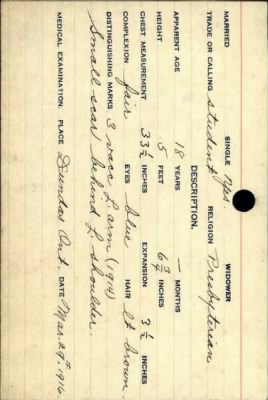 MARRIED SINGLE Yes. WIDOWER
TRADE OR CALLING Student RELIGION Presbyterian
DESCRIPTION.
APPARENT AGE 18 YEARS — MONTHS
HEIGHT 5 FEET 6 3/4 INCHES
CHEST MEASUREMENT 33 1/2 INCHES EXPANSION 3 1/2 INCHES
COMPLEXION fair EYES blue HAIR lt brown.
DISTINGUISHING MARKS 3 vacc L. arm (1914)
Small scar behind L. shoulder.
MEDICAL EXAMINATION. PLACE Dundas Ont. DATE Mar. 29th. 1916